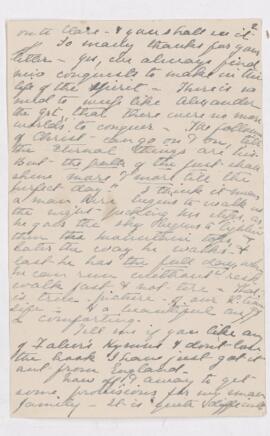 2
on to Clare - & you shall in it.
So many thanks for your
letter - Yes, we always find
new conquests to make in the
life of the Spirit - There is no
need to weep like Alexander
the Grt, that there were no more
worlds to conquer - The follower
of Christ can go on & on, till
the Eternal things are his.
But the path of the just shall
shine more & more till the
perfect day." I think it means
a man here begins to walk in
the night picking his steps, as
he goes the sky begins to lighten
over the mountain tops,
later the way he walks & at
last he has the full day, when
he can run without rest
walk fast & not tire - This
is true picture of our
life - & a beautiful and
comforting -
Tell me if you like any
of Faber's Hymns & don't
the book I have just got it
out from England -
Now off I away to get
some provisions for my small
family - It is quite